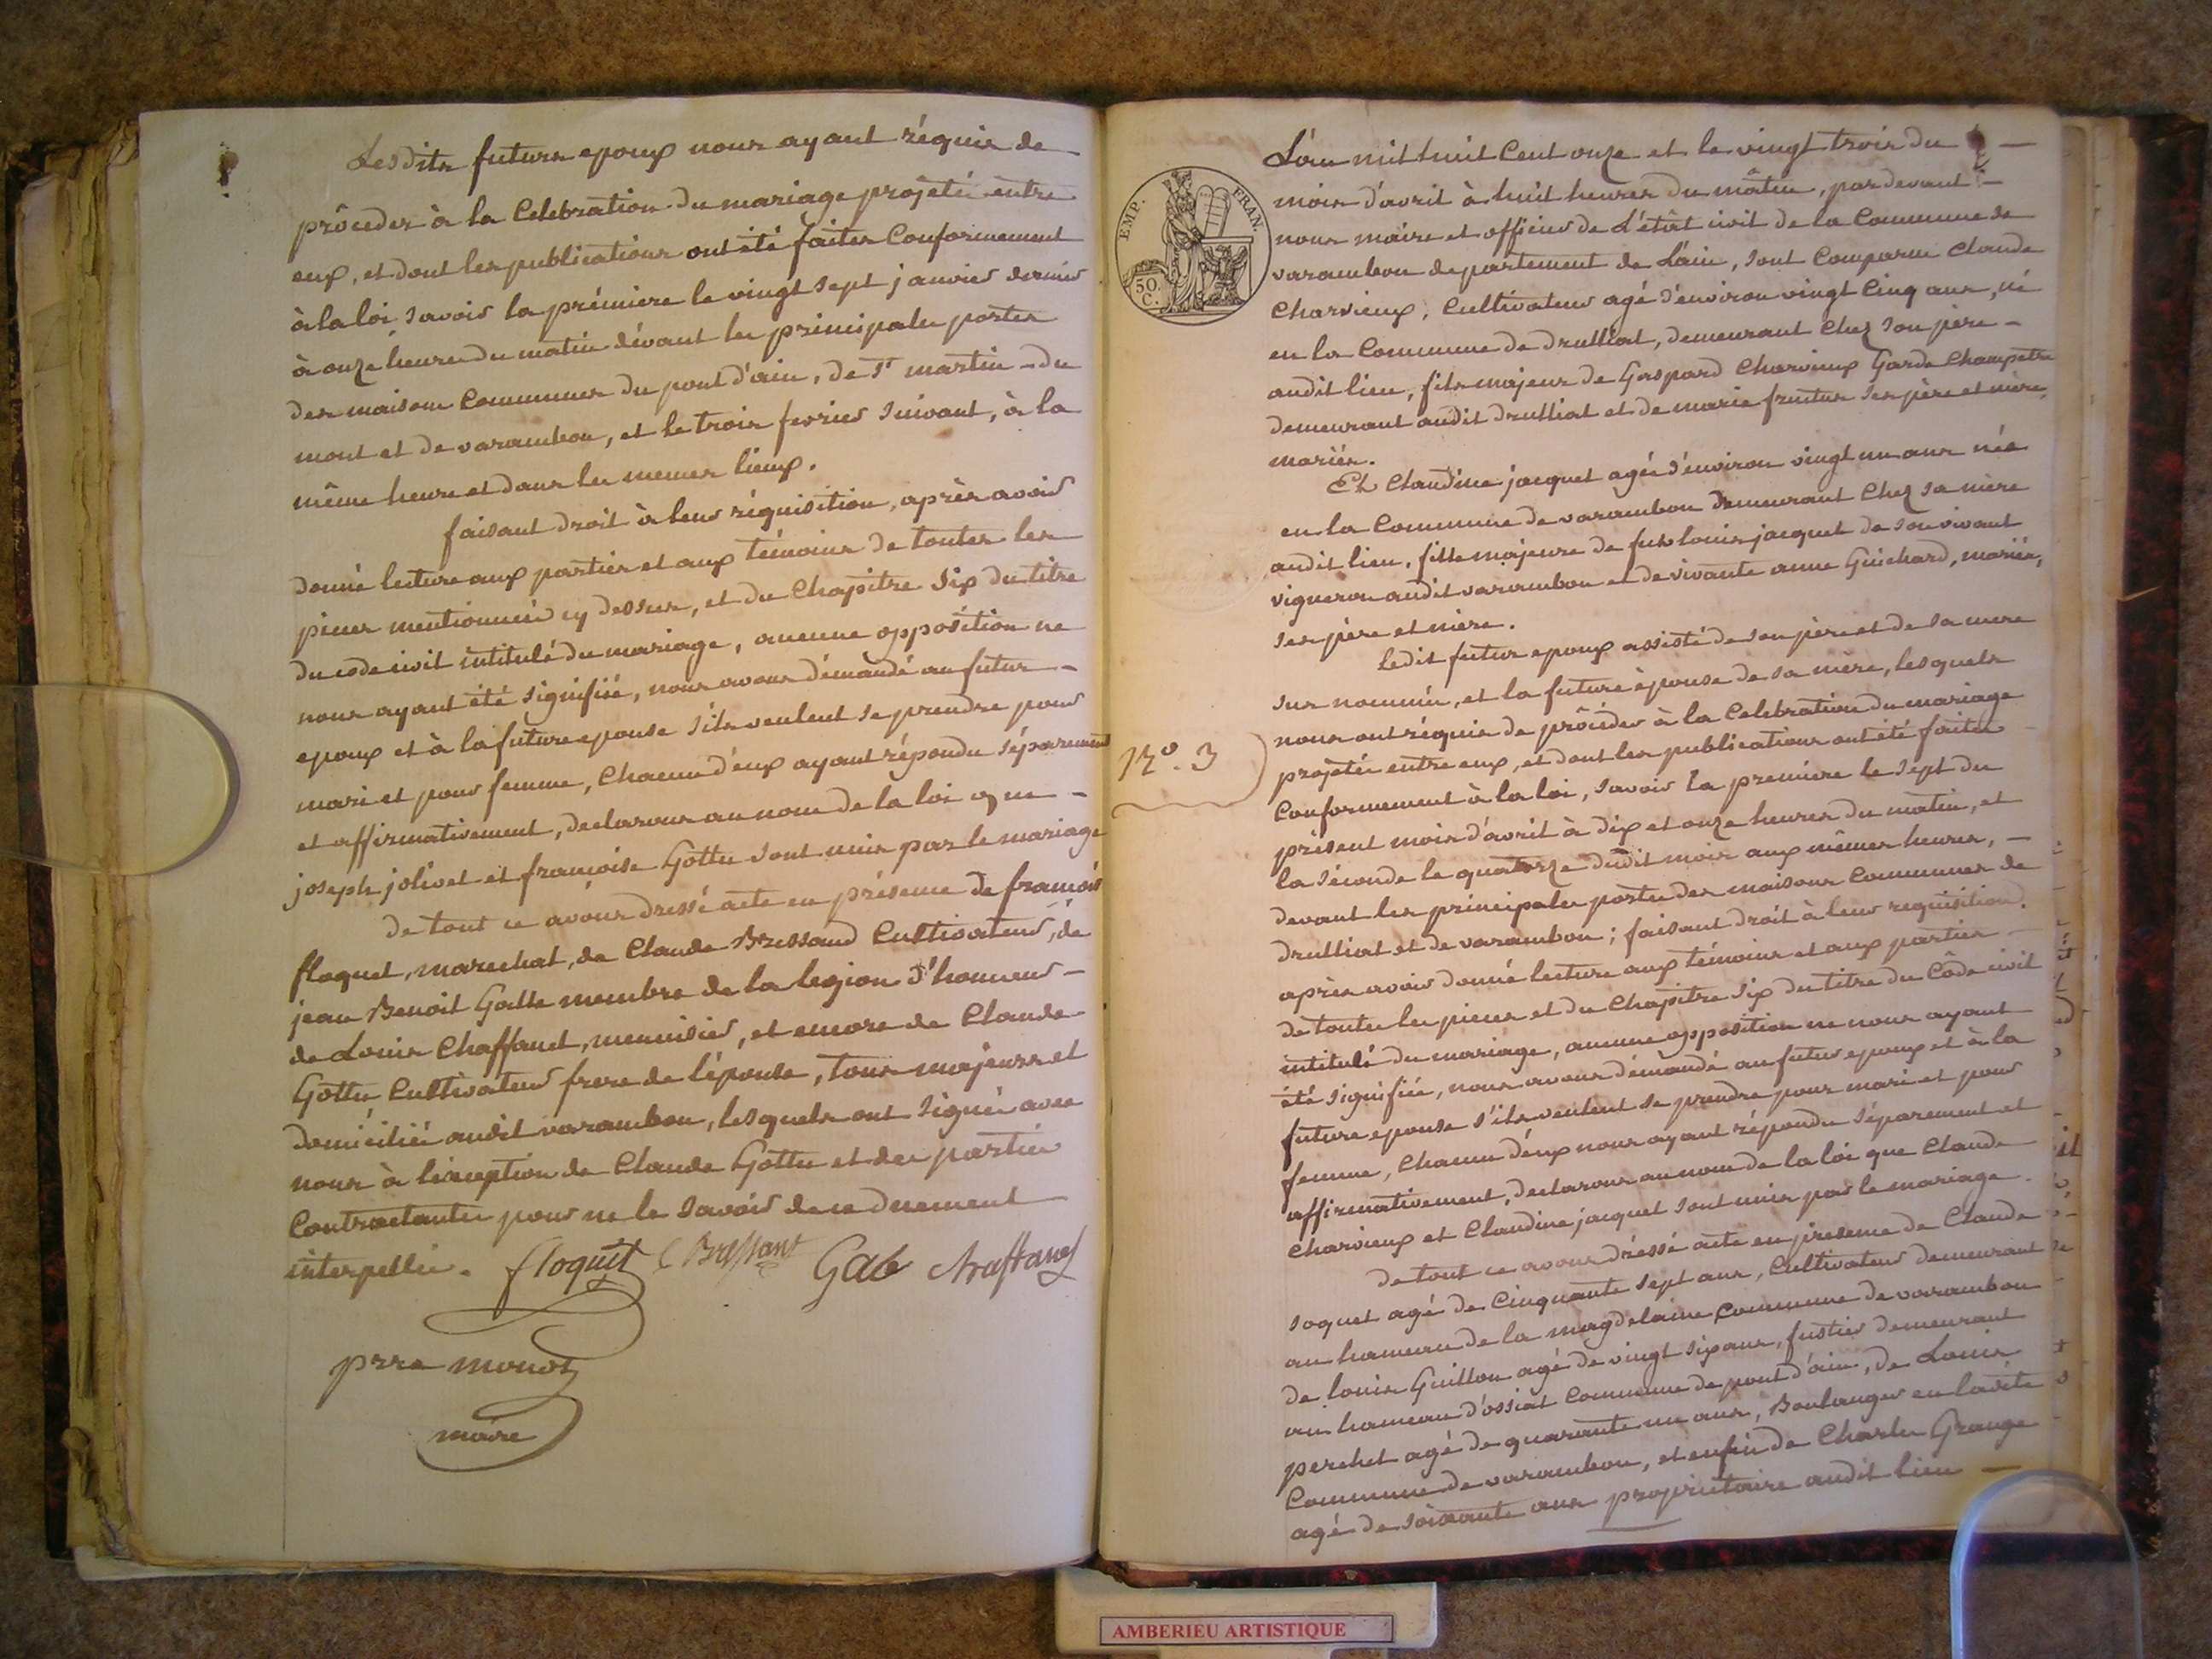 Lesdits futurs epoux nous ayant réquis de
procéder à la Celebration du mariage projetté entre
eux, et dont les publications ont été faites Conformement
à la loi, savoir la prémiere le vingt sept janvier dernier
à onze heures du matin dévant les principales portes
des maisons Communes du pont d'ain, de St martin du
mont et de varambon, et le trois fevrier suivant, à la
même heure et dans les memes lieux.
faisant droit à leur réquisition, après avoir
donné lecture aux parties et aux témoins de toutes les
pieces mentionnées cy dessus, et du Chapitre six du titre
du code civil intitulé du mariage, aucune opposition ne
nous ayant été signifiée, nous avons démandé au futur
epoux et à la future epouse s'ils veulent se prendre pour
mari et pour femme, Chacun d'eux ayant répondu séparement
et affirmativement, declarons au nom de la loi que
joseph jolivet et françoise Gottu sont unis par le mariage
de tout ce avons dressé acte en présence de françois
floquet, marechal, de Claude Bressand Cultivateur, de
jean Benoit Galle membre de la legion d'honneur
de Louis Chaffanet, menuisier, et encore de Claude
Gottu Cultivateur frere de l'épouse, tous majeurs et
domiciliés audit varambon, lesquels ont signé avec
nous à l'éxception de Claude Gottu et des parties
Contractantes pour ne le savoir de ce duement
interpellés. floquet C Bressant Gale
prre monoz
maire
EMP. FRAN.
50. C.
L'an mil huit Cent onze et le vingt trois du
mois d'avril à huit heures du mâtin, par devant
nous maire et officier de L'êtât civil de la Commune de
varambon departement de L'ain, sont Comparus Claude
Charvieux, Cultivateur agé d'environ vingt Cinq ans, né
en la Commune de druilliat, demeurant Chez son père
audit lieu, fils majeur de Gaspard Charvieux Garde Champêtre
demeurant audit druilliat et de marie ses père et mère,
mariés.
Et Claudine jacquet agée d'environ vingt un ans née
en la Commune de varambon demeurant Chez sa mère
audit lieu, fille majeure de feu louis jacquet de son vivant
vigneron audit varambon et de vivante anne Guichard, mariés,
ses père et mère.
Ledit futur epoux assisté de son père et de sa mere
sus nommés, et la future épouse de sa mère, lesquels
nous ont réquis de procéder à la Celebration du mariage
projetté entre eux, et dont les publications ont été faites
N°. 3
Conformement à la loi, savoir la premiere le sept du
présent mois d'avril à dix et onze heures du matin, et
la séconde le quatorze dudit mois aux mêmes heures,
devant les principales portes des maisons Communes de
druilliat et de varambon; faisant droit à leur requisition,
après avoir donné lecture aux témoins et aux parties
de toutes les pieces et du Chapitre six du titre du Côde civil
intitulé du mariage, aucune opposition ne nous ayant
été signifiée, nous avons démandé au futur epoux et à la
future epouse s'ils veulent se prendre pour mari et pour
femme, Chacun d'eux nous ayant répondu séparement et
affirmativement, declarons au nom de la loi que Claude
Charvieux et Claudine jacquet sont unis par le mariage.
De tout ce avons dréssé acte en presence de Claude
soquet agé de Cinquante sept ans, Cultivateur demeurant
au hameau de la magdelaine Commune de varambon
de louis Guillon agé de vingt six ans, fustier demeurant
au hameau d'ossiat Commune de pont d'ain, de Louis
perchet agé de quarante un ans, Boulanger en ladite
Commune de varambon, et enfin de Charles Grange
agé de soixante ans proprietaire audit lieu
AMBERIEU ARTISTIQUE